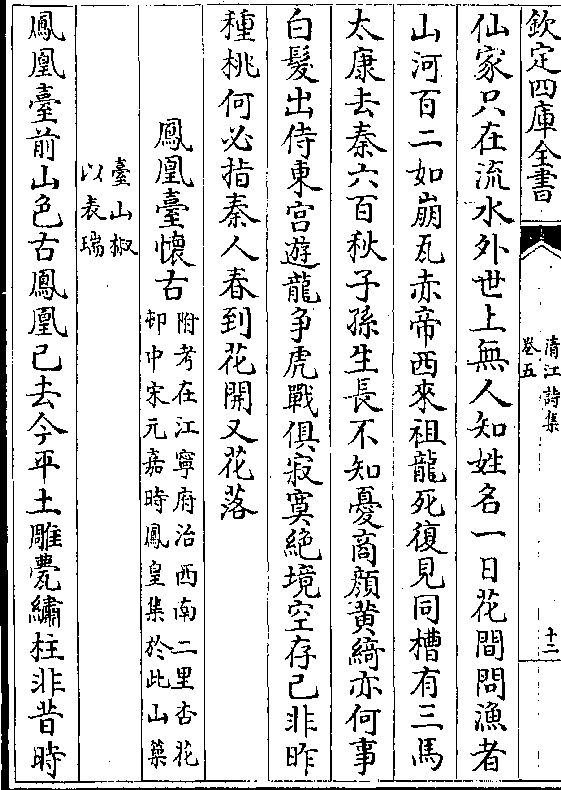 欽定四庫全書
清江詩集
卷五
十二
仙家只在流水外世上無人知姓名一日花間問漁者
山河百二如崩瓦赤帝西來祖龍死復見同槽有三馬
太康去秦六百秋子孫生長不知憂商顔黄綺亦何事
白髮出侍東宫遊龍争虎戰俱寂寞絶境空存已非昨
種桃何必指秦人春到花開又花落
鳳凰臺懷古
附考在江寧府治西南二里杏花
邨中宋元嘉時鳳皇集於此山築
臺山椒
以表瑞
鳳凰臺前山色古鳳凰已去今平土雕甍繡柱非昔時